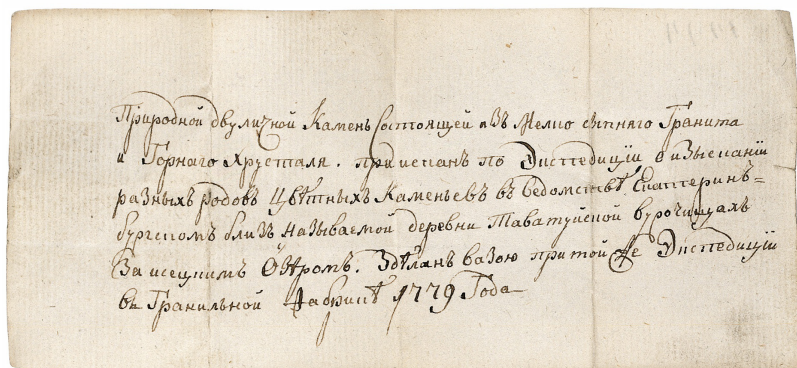 Природной двуличной Камень Состоящей изъ Мелко сыпняго Гранита
и Горнаго Хрусталя. приисканъ по Экспедицїи о изысканїи
разныхъ родовъ Цвѣтныхъ Каменьевъ въ ведомствѣ Екатеринъ=
бургскомъ близь называемой деревни Таватуйской вурочищахъ
За исецкимъ Озером. Здѣланъ вазою притой же Экспедицїи
въ Гранильной Фабрикѣ 1779 Года